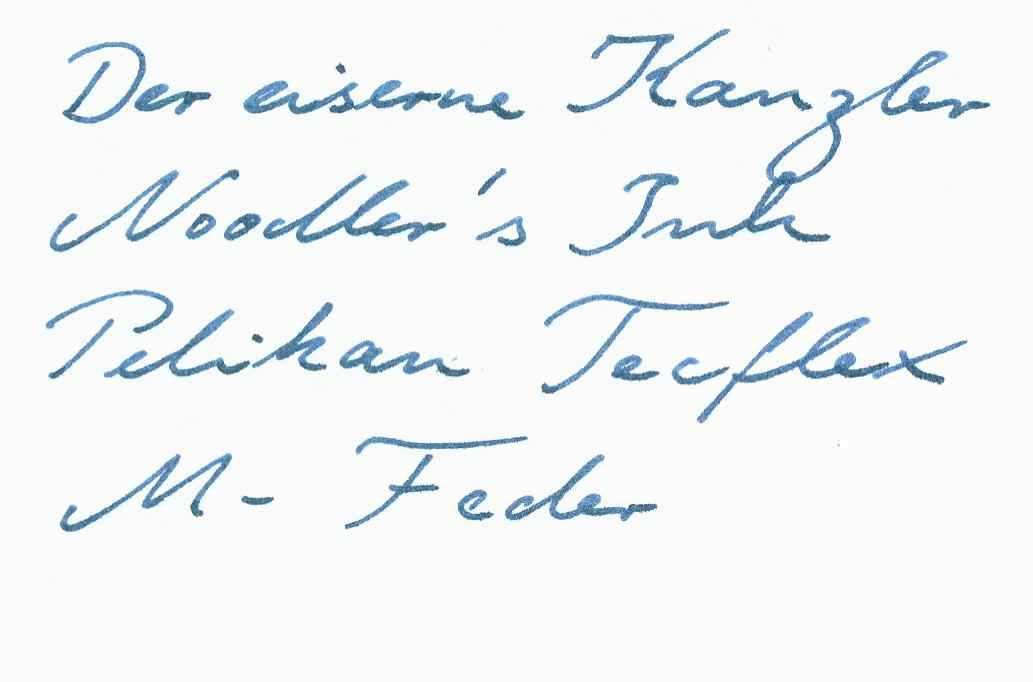 Der eiserne Kanzler
Noodler's Ink
Pelikan Tecflex
M- Feder